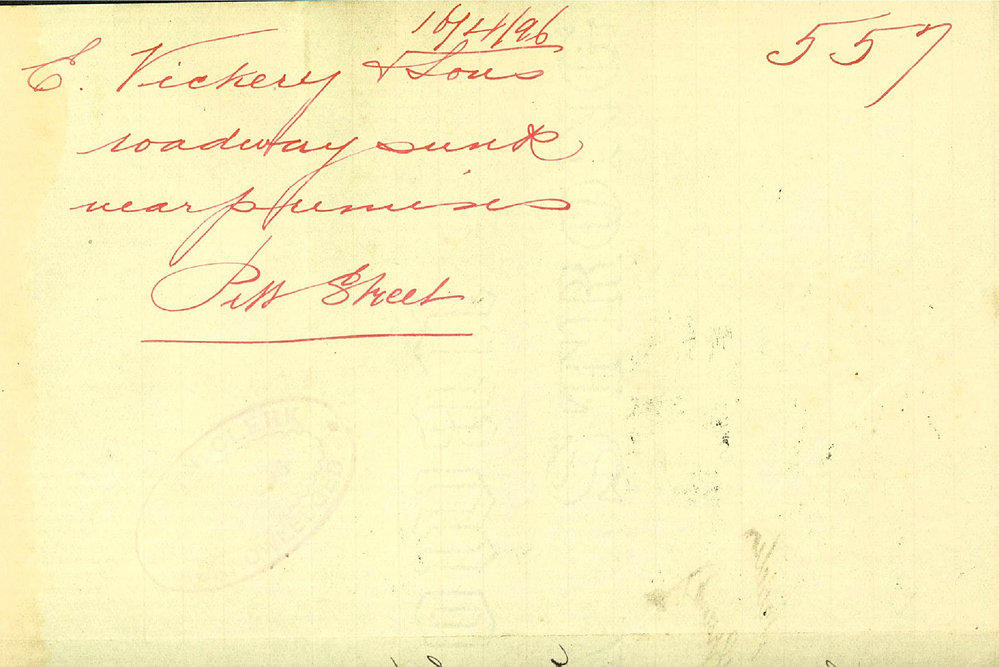 10/4/96
557
E. Vickery & Sons
roadway sunk
near premises
Pitt Street
CLERK